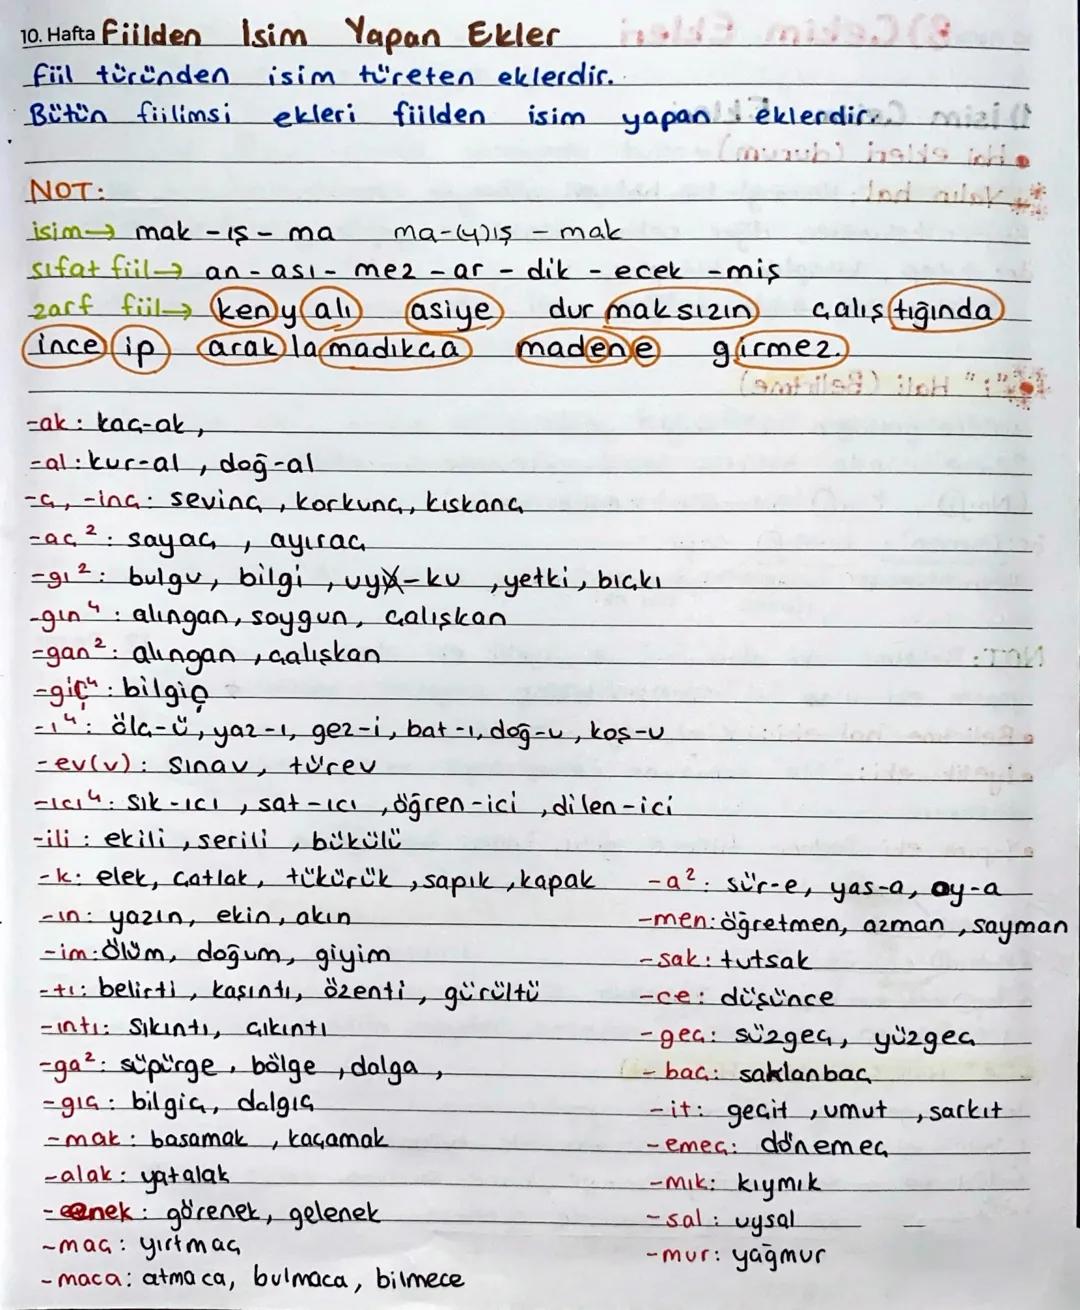 10. Hafta Fiilden İsim Yapan Ekler
fiil türünden isim türeten eklerdir.
Bütün fiilimsi ekleri fiilden isim yapan eklerdir.
NOT:
isim→ mak - ış - ma ma-(y)ış - mak
sıfat fiil→ an - ası - mez - ar - dik - ecek - miş
zarf fiil→ ken y alı asiye dur maksızın çalış tığında
ince ip arak la madıkça madene girmez.
-ak: kaç-ak,
-al: kur-al, doğ-al
-ç, -inç: sevinç, korkunç, kıskanç
-aç²: sayaç, ayıraç
-gı²: bulgu, bilgi, uy-ku, yetki, bıçkı
-gın⁴: alıngan, soygun, çalışkan
-gan²: alıngan, çalışkan
-giç⁴: bilgiç
-ı⁴: ölç-ü, yaz-ı, gez-i, bat-ı, doğ-u, koş-u
-ev(v): sınav, türev
-ıcı⁴: sık-ıcı, sat-ıcı, öğren-ici, dilen-ici
-ili: ekili, serili, bükülü
-k: elek, çatlak, tükürük, sapık, kapak
-ın: yazın, ekin, akın
-im: ölüm, doğum, giyim
-tı: belirti, kaşıntı, özenti, gürültü
-ıntı: sıkıntı, çıkıntı
-ga²: süpürge, bölge, dalga,
-gıç: bilgiç, dalgıç
-mak: basamak, kaçamak
-alak: yatalak
-enek: görenek, gelenek
-maç: yırtmaç
-maca: atmaca, bulmaca, bilmece
-a²: sür-e, yas-a, oy-a
-men: öğretmen, azman, sayman
-sak: tutsak
-ce: düşünce
-geç: süzgeç, yüzgeç
-baç: saklanbaç
-it: geçit, umut, sarkıt
-emeç: dönemeç
-mık: kıymık
-sal: uysal
-mur: yağmur